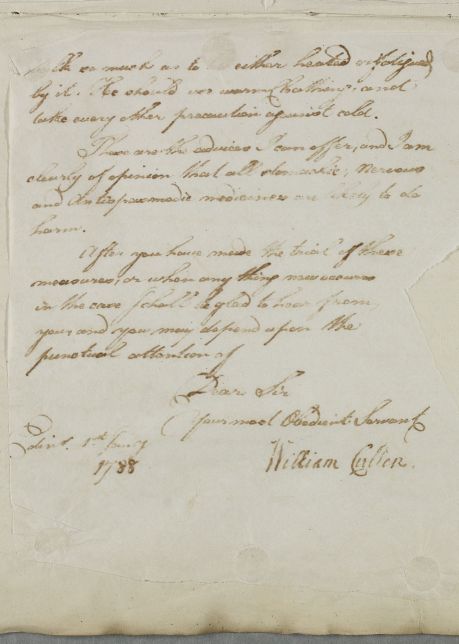 so much as to be either heated or fatigued
by it. He should use warm bathing; and
take every other precaution against cold.
These are the advices I can offer, and I am
clearly of opinion that all stomachic, Nervous
and Antispasmodic medicines are likely to do
harm.
After you have made the trial of these
measures, or when any thing new occurs
in the case I shall be glad to hear from
you and you may depend upon the
punctual attention of
Dear Sir
Your most Obedient Servant
Edinr. 1st
1788
William Cullen.